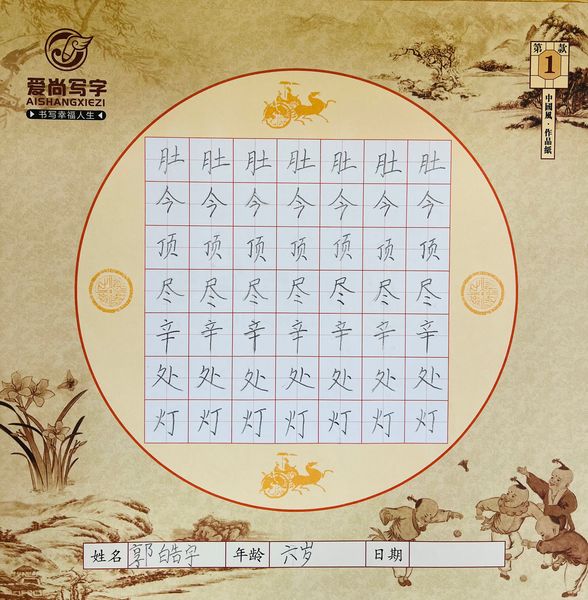 爱尚写字
AISHANGXIEZI
书写幸福人生
第1款
中國風·作品紙
肚肚肚肚肚肚肚
今今今今今今今
顶顶顶顶顶顶顶
尽尽尽尽尽尽尽
辛辛辛辛辛辛辛
处处处处处处处
灯灯灯灯灯灯灯
姓名 郭皓宇 年龄 六岁 日期